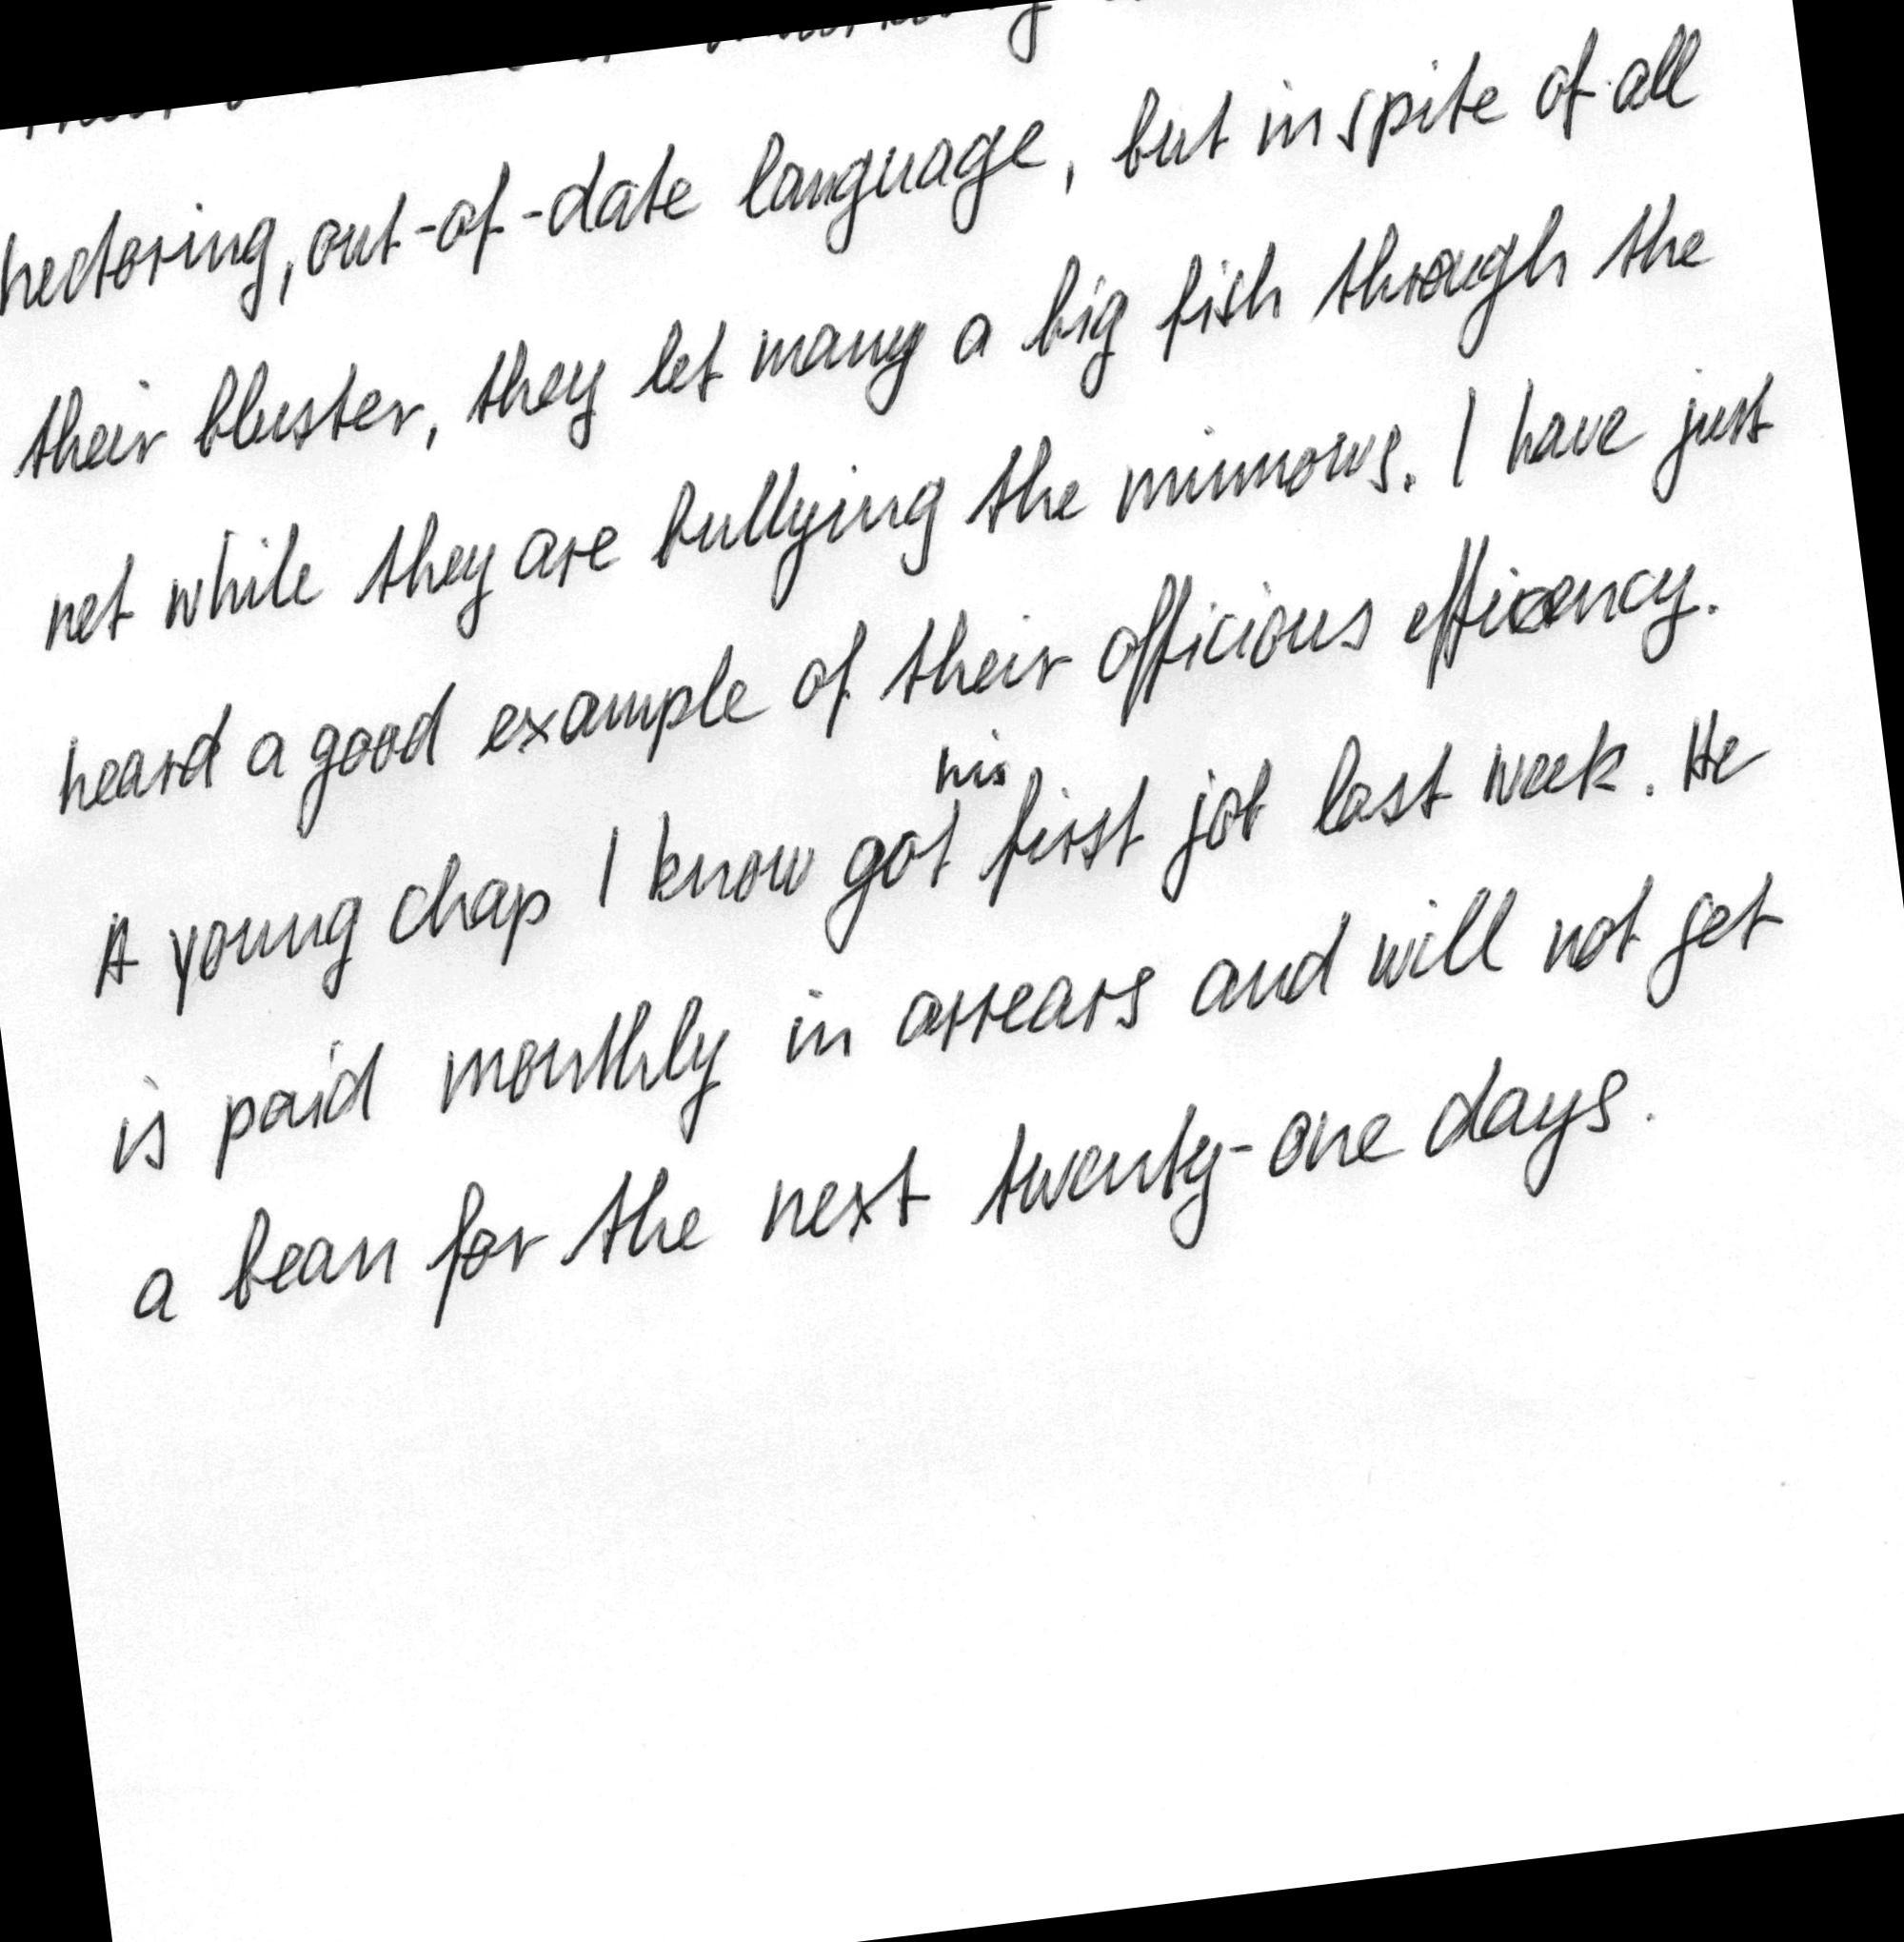 hectoring, out-of-date language, but in spite of all
their bluster, they let many a big fish through the
net while they are bullying the minnows. I have just
heard a good example of their officious efficency.
A young chap I know got his first job last week. He
is paid monthly in arrears and will not get
a bean for the next twenty-one days.